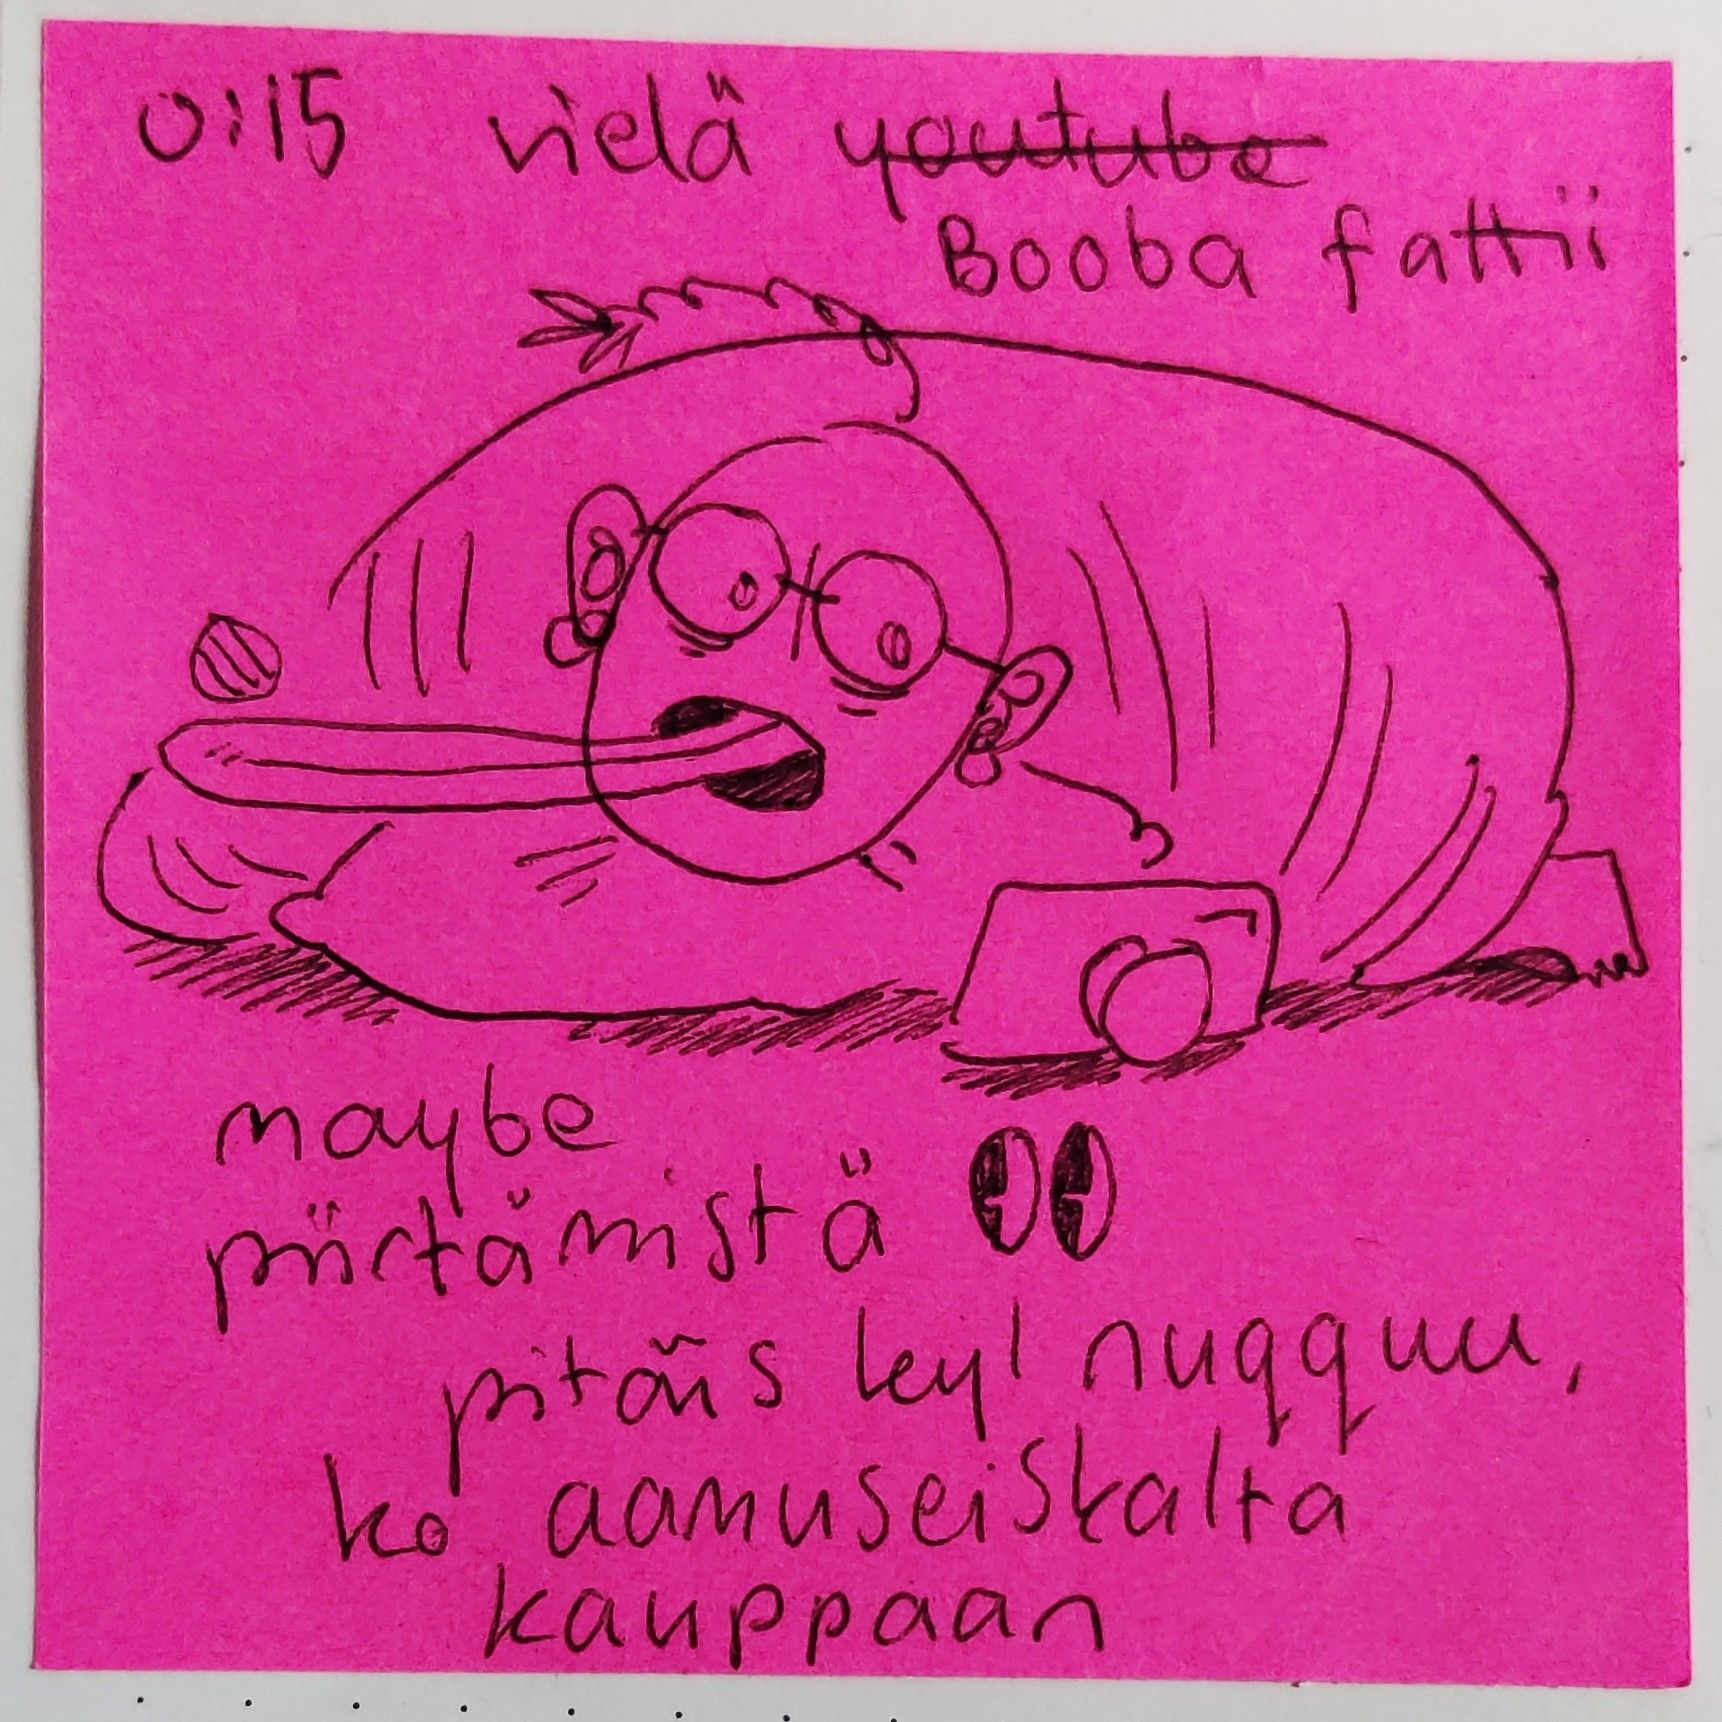 0:15 vielä youtube
Booba fattii
maybe
piirtämistä
pitäis kyl nuqquu,
ko aamuseiskalta
kauppaan